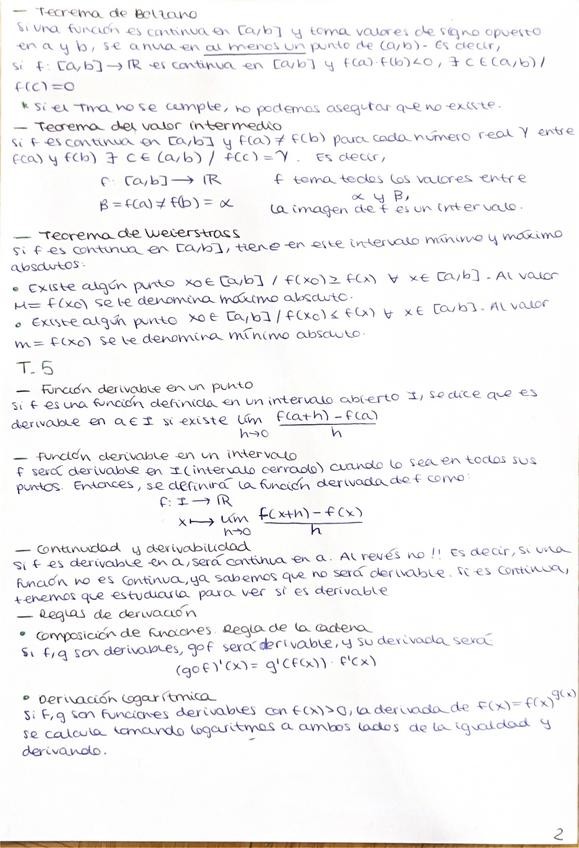 — Teorema de Bolzano
Si una función es continua en [a,b] y toma valores de signo opuesto
en a y b, se anula en al menos un punto de (a,b). Es decir,
si f: [a,b] → ℝ es continua en [a,b] y f(a)·f(b)<0, ∃ c ∈ (a,b) /
f(c)=0
* Si el Tma no se cumple, no podemos asegurar que no existe.
— Teorema del valor intermedio
Si f es continua en [a,b] y f(a) ≠ f(b) para cada número real γ entre
f(a) y f(b) ∃ c ∈ (a,b) / f(c) = γ. Es decir,
f: [a,b] → ℝ f toma todos los valores entre
α y β,
β = f(a) ≠ f(b) = α La imagen de f es un intervalo.
— Teorema de Weierstrass
Si f es continua en [a,b], tiene en este intervalo mínimo y máximo
absolutos:
• Existe algún punto x0 ∈ [a,b] / f(x0) ≥ f(x) ∀ x ∈ [a,b]. Al valor
M = f(x0) se le denomina máximo absoluto.
• Existe algún punto x0 ∈ [a,b] / f(x0) ≤ f(x) ∀ x ∈ [a,b]. Al valor
m = f(x0) se le denomina mínimo absoluto.
T. 5
— Función derivable en un punto
Si f es una función definida en un intervalo abierto I, se dice que es
derivable en a ∈ I si existe lím h→0 (f(a+h) − f(a))/h
— Función derivable en un intervalo
f será derivable en I (intervalo cerrado) cuando lo sea en todos sus
puntos. Entonces, se definirá la función derivada de f como:
f: I → ℝ
x ↦ lím h→0 (f(x+h) − f(x))/h
— Continuidad y derivabilidad
Si f es derivable en a, será continua en a. Al revés no!! Es decir, si una
función no es continua, ya sabemos que no será derivable. Si es continua,
tenemos que estudiarla para ver si es derivable
— Reglas de derivación
• Composición de funciones. Regla de la cadena
Si f,g son derivables, gof será derivable, y su derivada será
(gof)'(x) = g'(f(x)) · f'(x)
• Derivación logarítmica
Si f,g son funciones derivables con f(x)>0, la derivada de f(x)=f(x)^g(x)
se calcula tomando logaritmos a ambos lados de la igualdad y
derivando.
2